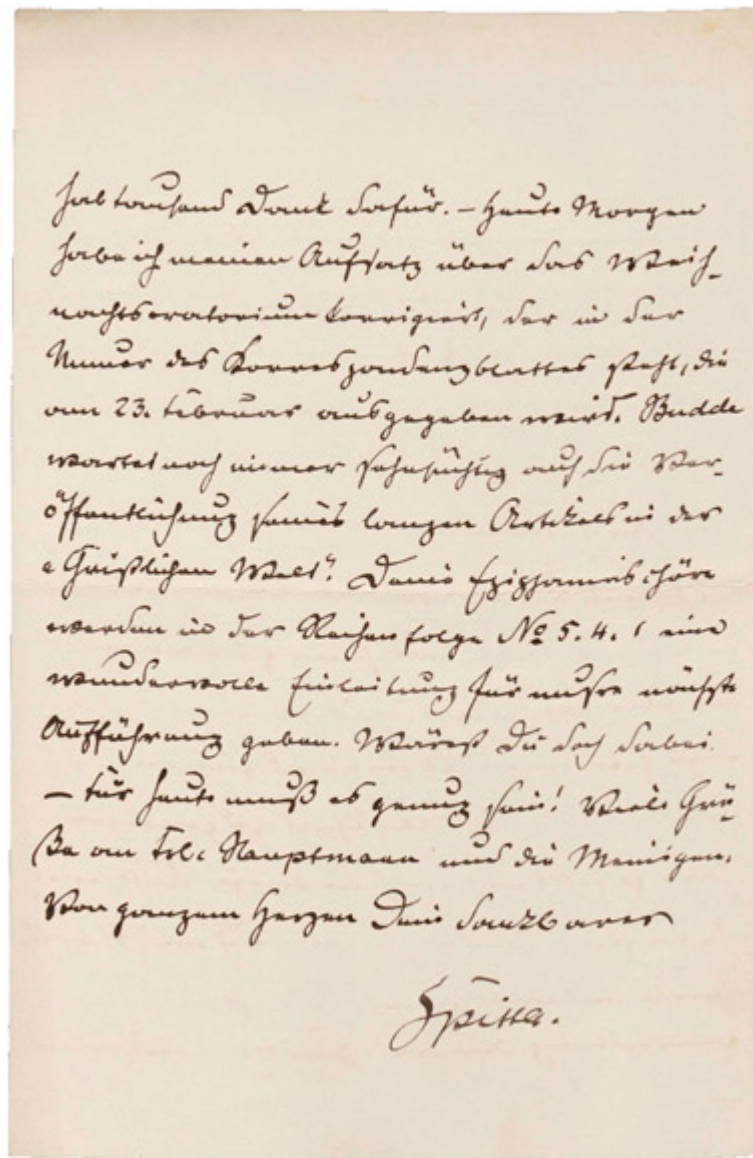 hab tausend Dank dafür. – Heute Morgen
habe ich meinen Aufsatz über das Weih-
nachtsoratorium korrigiert, der in der
Numer des Korrespondenzblattes steht, die
am 23. Februar ausgegeben wird. Budde
wartet noch immer sehnsüchtig auf die Ver-
öffentlichung seines langen Artikels in der
„Christlichen Welt". Deine Epiphaniaschöre
werden in der Reihenfolge No 5. 4. 1 eine
wundervolle Einleitung für unsre nächste
Aufführung geben. Wärest Du doch dabei.
– Für heute muß es genug sein! Viele Grü-
ße an Frl. Hauptmann und die Meinigen.
Von ganzem Herzen Dein dankbarer
Spitta.